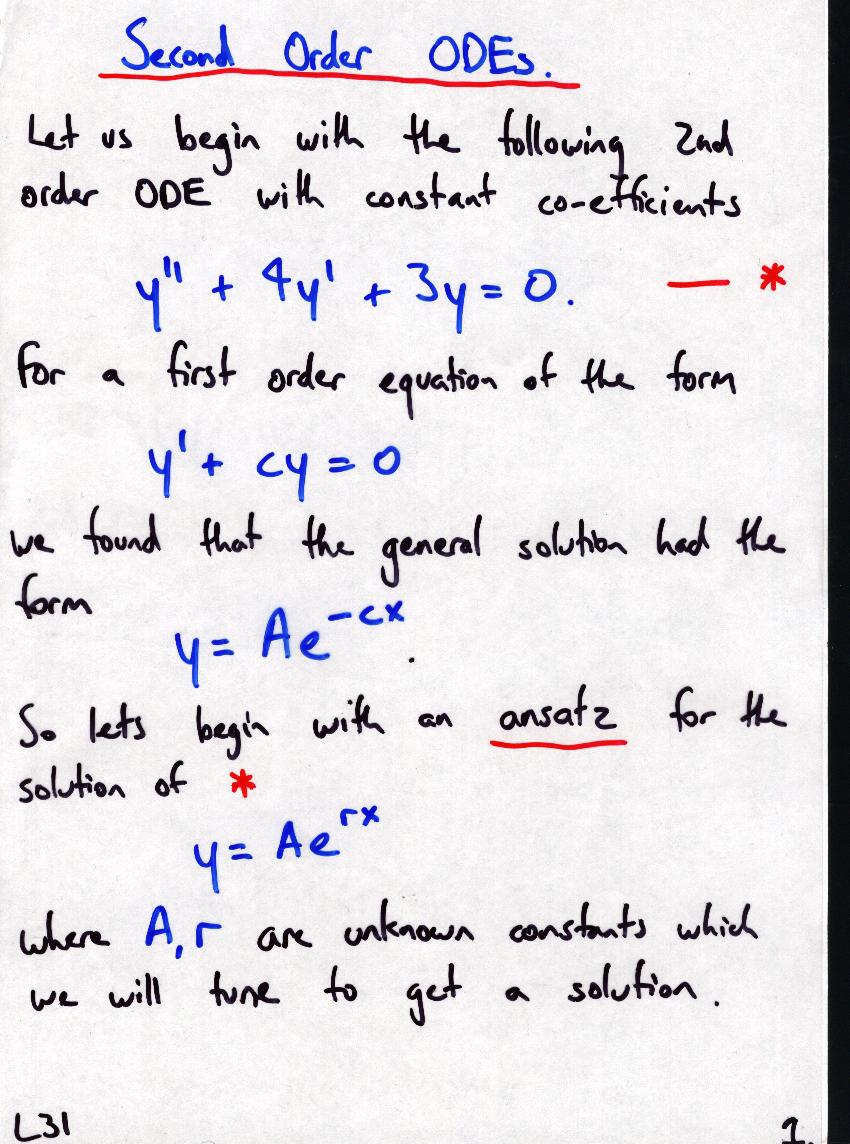 Second Order ODEs.
Let us begin with the following 2nd
order ODE with constant co-efficients
y'' + 4y' + 3y = 0. — *
For a first order equation of the form
y' + cy = 0
we found that the general solution had the
form
y = Ae^{-cx}.
So lets begin with an ansatz for the
solution of *
y = Ae^{rx}
where A, r are unknown constants which
we will tune to get a solution.
L31 1.